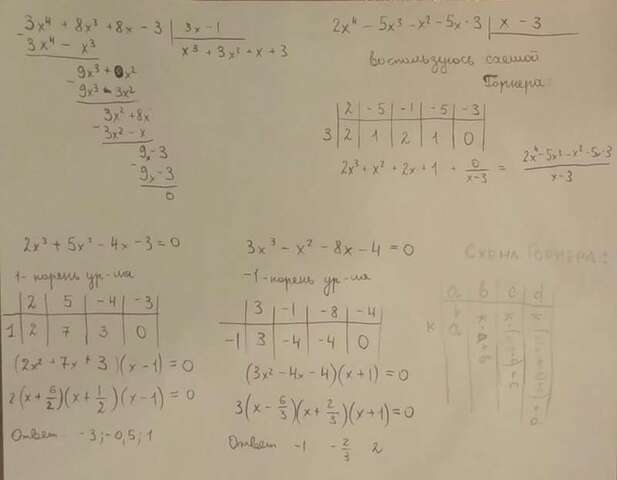 3x⁴ + 8x³ + 8x - 3 | 3x - 1
3x⁴ - x³
x³ + 3x² + x + 3
9x³ + 0x²
9x³ - 3x²
3x² + 8x
3x² - x
9x - 3
9x - 3
0
2x⁴ - 5x³ - x² - 5x - 3 | x - 3
Воспользуюсь схемой
Горнера:
2 | -5 | -1 | -5 | -3
3 | 2 | 1 | 2 | 1 | 0
2x³ + x² + 2x + 1 + 0/(x-3) = (2x⁴ - 5x³ - x² - 5x - 3)/(x-3)
2x³ + 5x² - 4x - 3 = 0
1 - корень ур-ия
2 | 5 | -4 | -3
1 | 2 | 7 | 3 | 0
(2x² + 7x + 3)(x - 1) = 0
2(x + 6/2)(x + 1/2)(x - 1) = 0
Ответ -3; -0,5; 1
3x³ - x² - 8x - 4 = 0
-1 - корень ур-ия
3 | -1 | -8 | -4
-1 | 3 | -4 | -4 | 0
(3x² - 4x - 4)(x + 1) = 0
3(x - 6/3)(x + 2/3)(x + 1) = 0
Ответ -1 -2/3 2
Схема Горнера:
a | b | c | d
к | a